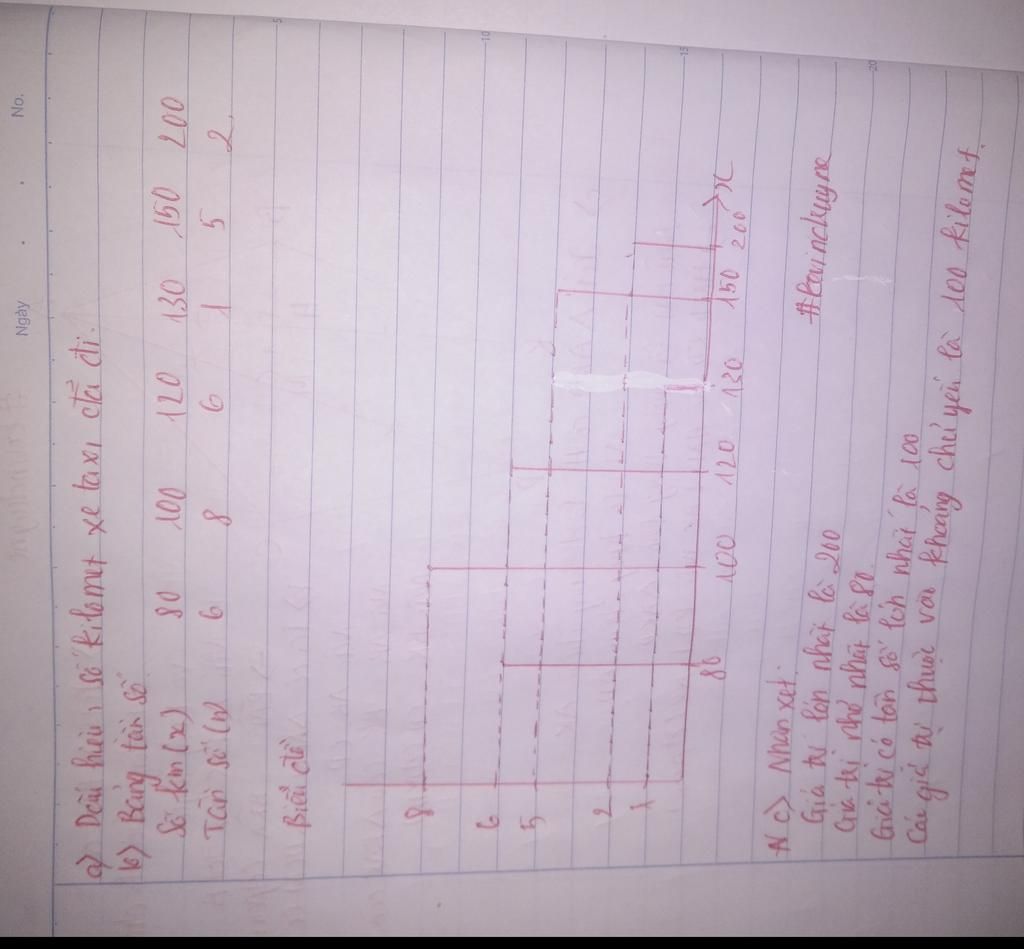 Ngày . . No.
5
10
15
20
a) Dấu hiệu, số kilomet xe taxi đã đi.
b) Bảng tần số
Số km (x) 80 100 120 130 150 200
Tần số (n) 6 8 6 1 5 2
Biểu đồ
8
6
5
2
1
80 100 120 130 150 200 x
c) Nhận xét.
Giá trị lớn nhất là 200
Giá trị nhỏ nhất là 80.
Giá trị có tần số lớn nhất là 100
Các giá trị thuộc vào khoảng chủ yếu là 100 kilomet.